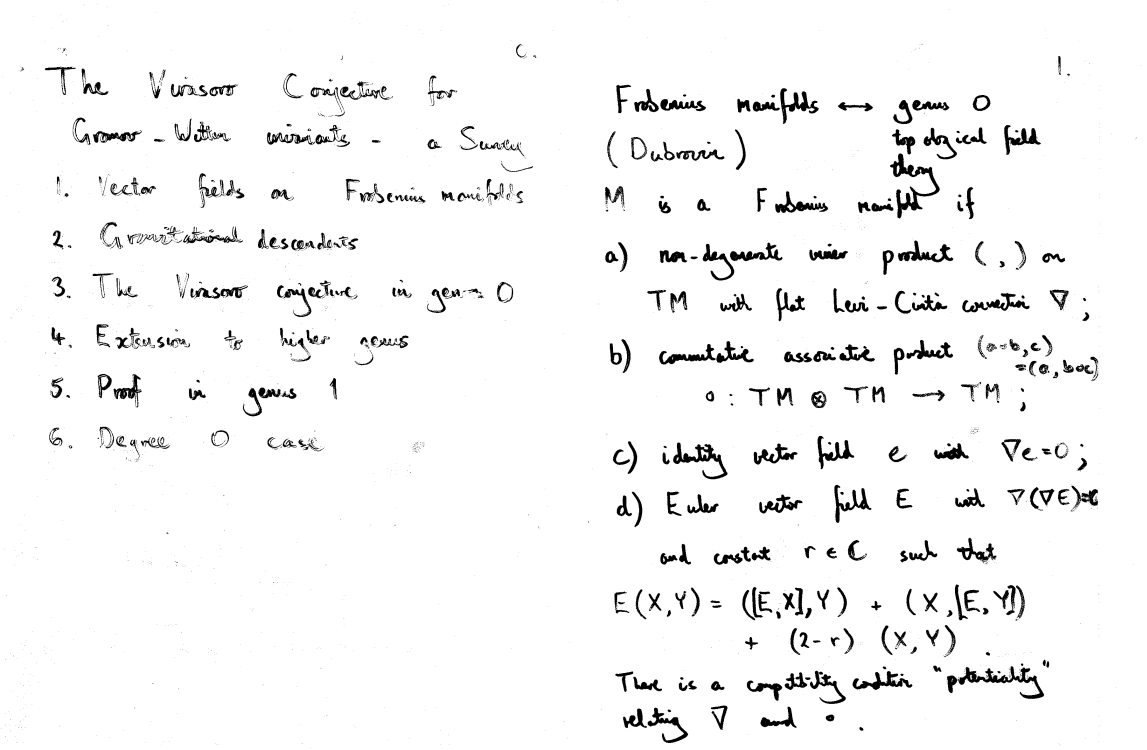 0.
The Virasoro Conjecture for
Gromov-Witten invariants - a Survey
1. Vector fields on Frobenius manifolds
2. Gravitational descendents
3. The Virasoro conjecture in genus 0
4. Extension to higher genus
5. Proof in genus 1
6. Degree 0 case
1.
Frobenius manifolds ↔ genus 0
(Dubrovin) topological field
theory
M is a Frobenius manifold if
a) non-degenerate inner product ( , ) on
TM with flat Levi-Civita connection ∇;
b) commutative associative product (a∘b,c)
=(a,b∘c)
∘ : TM ⊗ TM → TM ;
c) identity vector field e with ∇e=0;
d) Euler vector field E with ∇(∇E)=0
and constant r ∈ ℂ such that
E(X,Y) = ([E,X],Y) + (X,[E,Y])
+ (2-r) (X,Y) .
There is a compatibility condition "potentiality"
relating ∇ and ∘ .